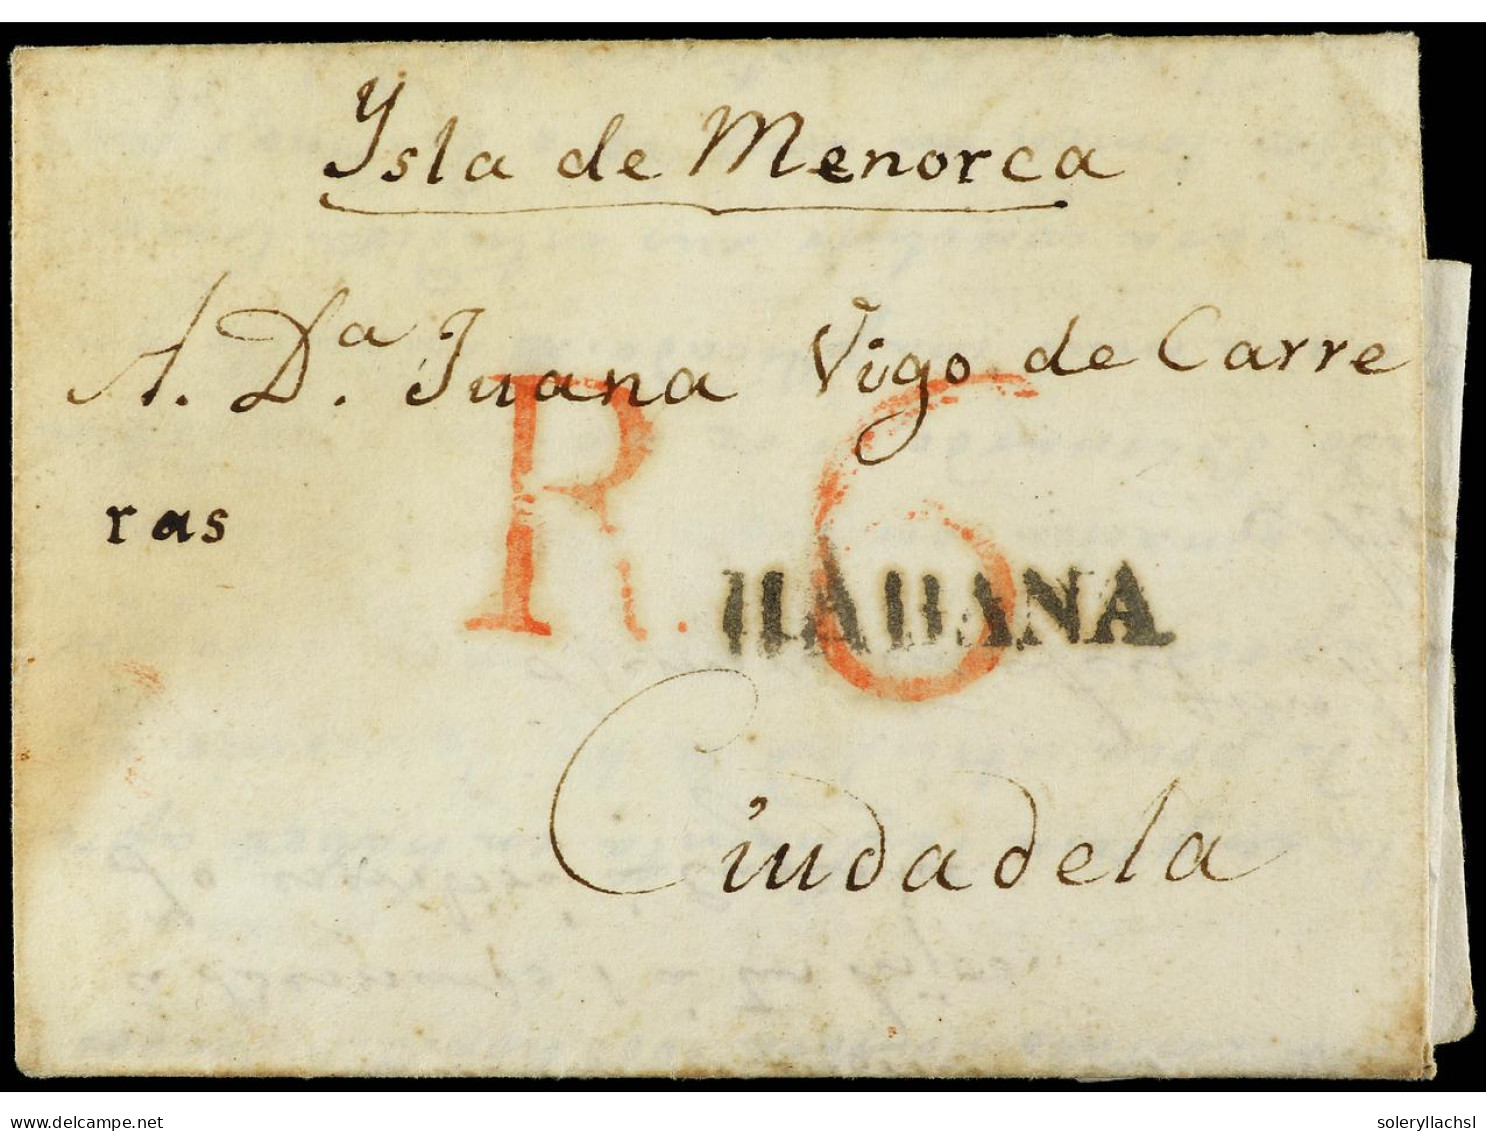 Ysla de Menorca
A. D.ª Juana Vigo de Carre
ras
R. 6
HABANA
Ciudadela
delcampe.net
soleryllachsl